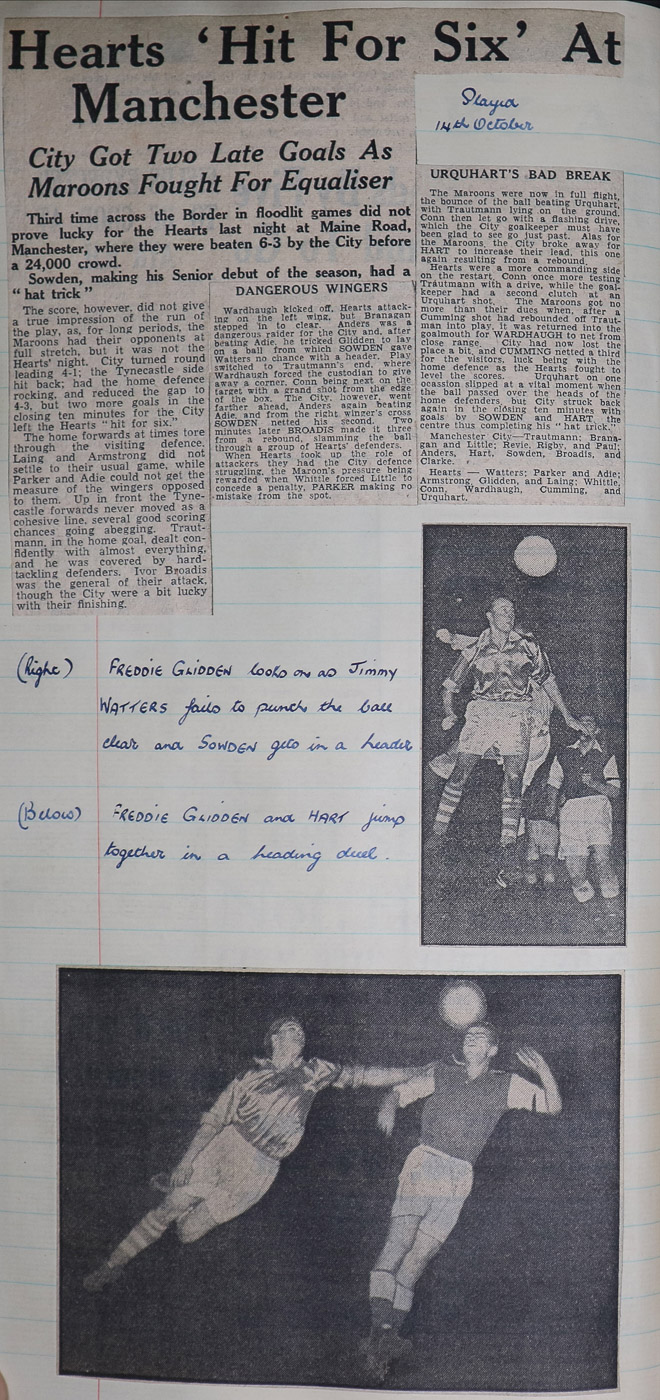 Hearts ‘Hit For Six’ At
Manchester
Played
14th October
City Got Two Late Goals As
Maroons Fought For Equaliser
Third time across the Border in floodlit games did not
prove lucky for the Hearts last night at Maine Road,
Manchester, where they were beaten 6-3 by the City before
a 24,000 crowd.
Sowden, making his Senior debut of the season, had a
“ hat trick ”
The score, however, did not give
a true impression of the run of
the play, as, for long periods, the
Maroons had their opponents at
full stretch, but it was not the
Hearts' night. City turned round
leading 4-1; the Tynecastle side
hit back; had the home defence
rocking, and reduced the gap to
4-3, but two more goals in the
closing ten minutes for the City
left the Hearts “hit for six.”
The home forwards at times tore
through the visiting defence.
Laing and Armstrong did not
settle to their usual game, while
Parker and Adie could not get the
measure of the wingers opposed
to them. Up in front the Tyne-
castle forwards never moved as a
cohesive line, several good scoring
chances going abegging. Traut-
mann, in the home goal, dealt con-
fidently with almost everything,
and he was covered by hard-
tackling defenders. Ivor Broadis
was the general of their attack,
though the City were a bit lucky
with their finishing.
DANGEROUS WINGERS
Wardhaugh kicked off, Hearts attack-
ing on the left wing, but Branagan
stepped in to clear. Anders was a
dangerous raider for the City and, after
beating Adie, he tricked Glidden to lay
on a ball from which SOWDEN gave
Watters no chance with a header. Play
switched to Trautmann's end, where
Wardhaugh forced the custodian to give
away a corner, Conn being next on the
target with a grand shot from the edge
of the box. The City, however, went
farther ahead, Anders again beating
Adie, and from the right winger's cross
SOWDEN netted his second. Two
minutes later BROADIS made it three
from a rebound, slamming the ball
through a group of Hearts' defenders.
When Hearts took up the role of
attackers they had the City defence
struggling, the Maroon's pressure being
rewarded when Whittle forced Little to
concede a penalty, PARKER making no
mistake from the spot.
URQUHART'S BAD BREAK
The Maroons were now in full flight,
the bounce of the ball beating Urquhart,
with Trautmann lying on the ground.
Conn then let go with a flashing drive,
which the City goalkeeper must have
been glad to see go just past. Alas for
the Maroons, the City broke away for
HART to increase their lead, this one
again resulting from a rebound.
Hearts were a more commanding side
on the restart, Conn once more testing
Trautmann with a drive, while the goal-
keeper had a second clutch at an
Urquhart shot. The Maroons got no
more than their dues when, after a
Cumming shot had rebounded off Traut-
man into play, it was returned into the
goalmouth for WARDHAUGH to net from
close range. City had now lost the
place a bit, and CUMMING netted a third
for the visitors, luck being with the
home defence as the Hearts fought to
level the scores. Urquhart on one
ocassion slipped at a vital moment when
the ball passed over the heads of the
home defenders, but City struck back
again in the closing ten minutes with
goals by SOWDEN and HART, the
centre thus completing his “ hat trick.”
Manchester City—Trautmann; Brana-
gan and Little; Revie, Rigby, and Paul;
Anders, Hart, Sowden, Broadis, and
Clarke.
Hearts — Watters; Parker and Adie;
Armstrong, Glidden, and Laing; Whittle,
Conn, Wardhaugh, Cumming, and
Urquhart.
(Right) FREDDIE GLIDDEN looks on as Jimmy
WATTERS fails to punch the ball
clear and SOWDEN gets in a header
(Below) FREDDIE GLIDDEN and HART jump
together in a heading duel.